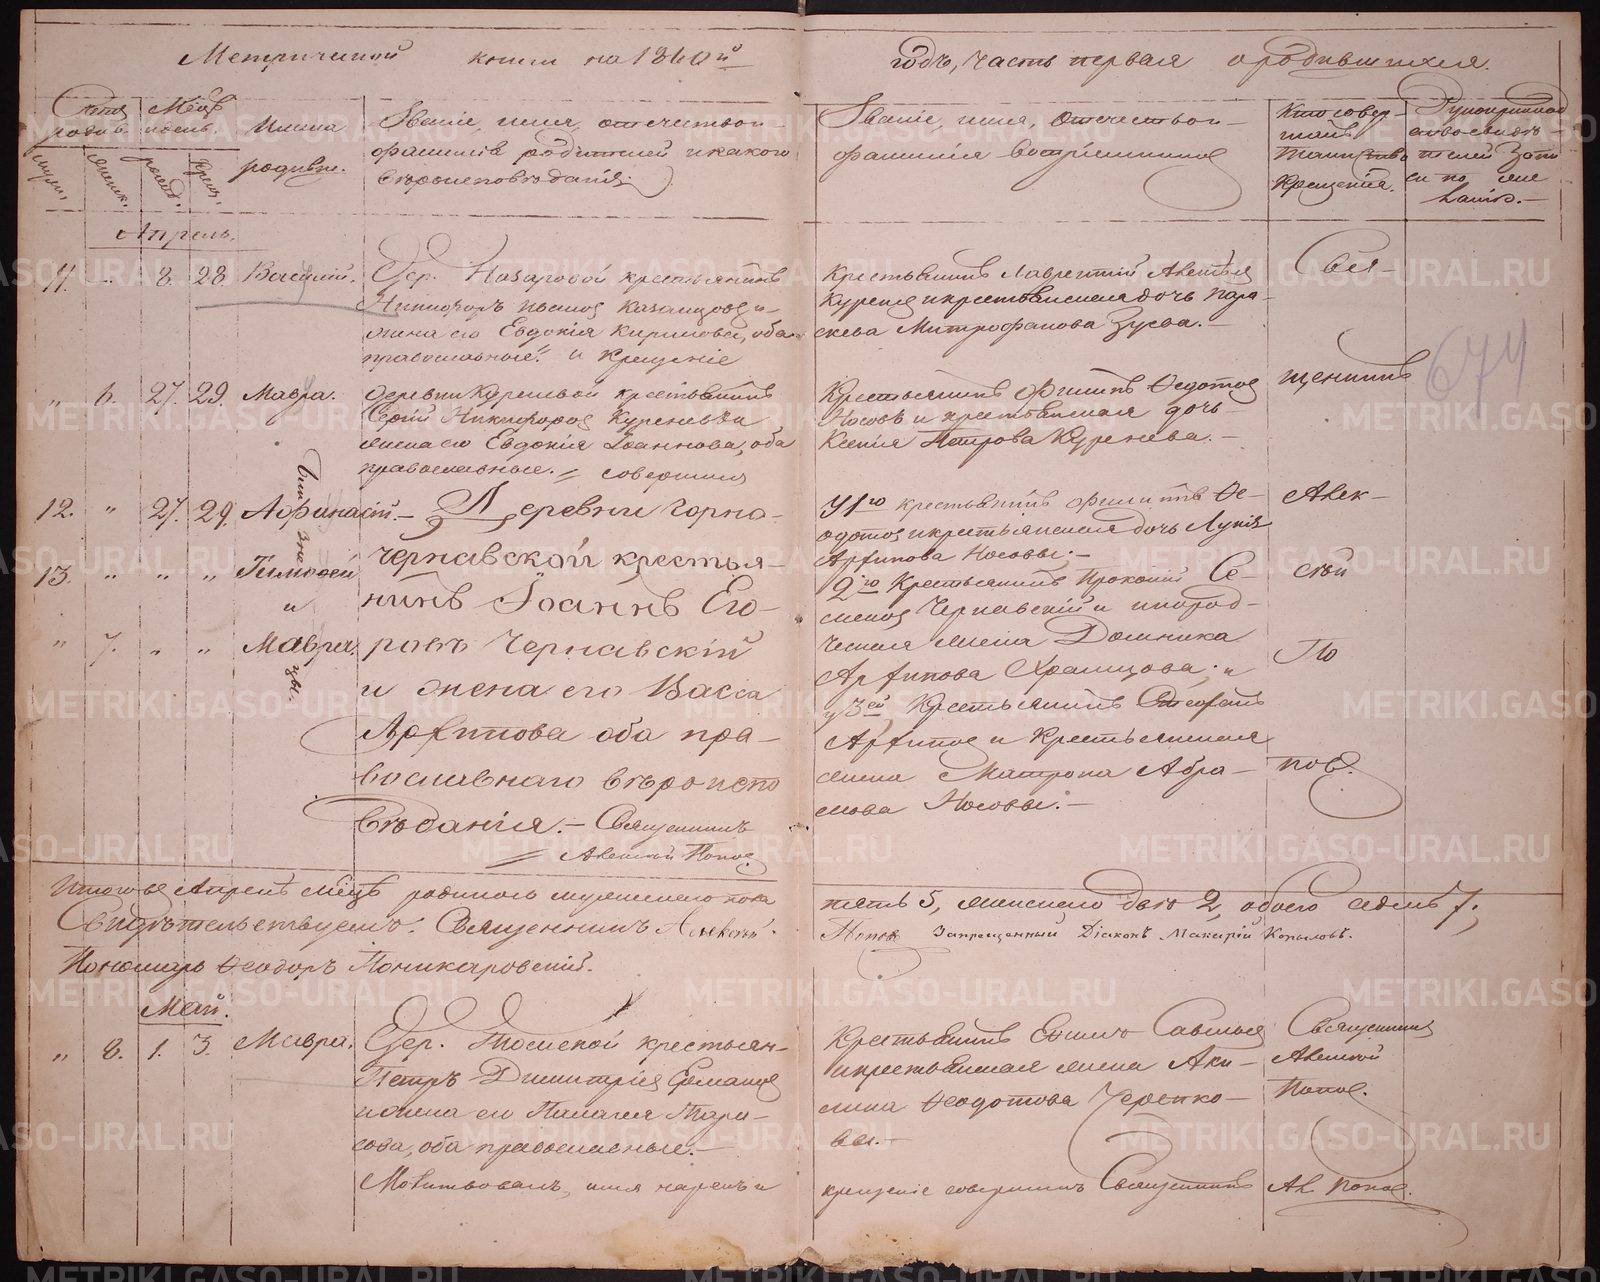 Метрической книги на 1860й
годъ, часть первая о родившихся.
Счетъ родив.
Мѣсяцъ и день.
Имена родивш.
Званіе, имя, отечество и
фамилія родителей и какого
вѣроисповѣданія.
Званіе, имя, отечество и
фамилія воспріемниковъ
Кто совер-
шалъ
таинство
крещенія.
Рукоприклад
ство свидѣ-
телей запи
си по же
ланію.
мужс.
женск.
рожд.
крещ.
Апрель.
11. " 8. 28. Василій.
Дер. Назаровой крестьянинъ
Никифоръ Ивановъ Казанцовъ и
жена его Евдокія Кирилова, оба
православные. и крещеніе
крестьянинъ Лаврентій
и крестьянская дочь Пара-
скева Митрофанова Зуева.
Свя-
674
" 6. 27. 29. Мавра.
деревни Куреневой крестьянинъ
Сергій Никифоровъ Куреневъ и
жена его Евдокія Іоаннова, оба
православные. совершилъ
Крестьянинъ Филипъ Ѳедотовъ
Носовъ и крестьянская дочь
Ксенія Петрова Куренева.
щенникъ
12. " 27. 29. Аѳанасій.
13. " " " Тимоѳей
и
" 7. " " Мавра.
близнецы.
Деревни Горно-
Чернавской крестья-
нинъ Іоаннъ Его-
ровъ Чернавскій
и жена его Васса
Архипова оба пра-
вославнаго вѣроиспо
вѣданія. Священникъ
Алексій Поповъ
у 1го крестьянинъ Филиппъ Ѳе-
дотовъ и крестьянская дочь Лукія
Архипова Носовы.
2го Крестьянинъ Прокопій Се-
меновъ Чернавскій и инород-
ческая жена Домника
Архипова Храмцова; и
у 3ей, Крестьянинъ Стефанъ
Архиповъ и Крестьянская
жена Матрона Абра-
мова Носовы.
Алек-
сѣй
По
повъ.
Итого въ Апрелѣ мѣсяцѣ родилось мужескаго пола
пять 5, женскаго два 2, обоего семь 7,
Свидѣтельствуемъ: Священникъ Алексій
Поповъ Запрещенный Діаконъ Макарій Копыловъ.
Пономарь Ѳеодоръ Поникаровскій.
Май.
" 8. 1. 3. Мавра.
Дер. крестьян-
Петръ Димитріевъ
и жена его Палагея Тара-
сова, оба православные.
Молитвовалъ, имя нарекъ и
Крестьянинъ Савельев
и крестьянская жена Аки-
лина Ѳеодотова Черепко-
вы.
крещеніе совершилъ Священникъ Ал. Поповъ.
Священникъ
Алексій
Поповъ.
METRIKI.GASO-URAL.RU